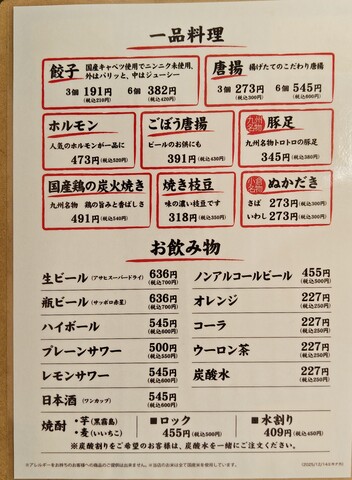 一品料理
餃子 国産キャベツ使用でニンニク未使用、
外はパリッと、中はジューシー
3個 191円 (税込210円) 6個 382円 (税込420円)
唐揚 揚げたてのこだわり唐揚
3個 273円 (税込300円) 6個 545円 (税込600円)
ホルモン
人気のホルモンが一品に
473円(税込520円)
ごぼう唐揚
ビールのお供にも
391円(税込430円)
九州名物 豚足
九州名物トロトロの豚足
345円(税込380円)
国産鶏の炭火焼き
九州名物 鶏の旨みと香ばしさ
491円(税込540円)
焼き枝豆
味の濃い枝豆です
318円(税込350円)
小倉名物 ぬかだき
さば 273円(税込300円)
いわし 273円(税込300円)
お飲み物
生ビール (アサヒスーパードライ) 636円 (税込700円)
瓶ビール (サッポロ赤星) 636円 (税込700円)
ハイボール 545円 (税込600円)
プレーンサワー 500円 (税込550円)
レモンサワー 545円 (税込600円)
日本酒 (ワンカップ) 545円 (税込600円)
ノンアルコールビール 455円 (税込500円)
オレンジ 227円 (税込250円)
コーラ 227円 (税込250円)
ウーロン茶 227円 (税込250円)
炭酸水 227円 (税込250円)
焼酎 ・芋(黒霧島)
・麦(いいちこ)
■ロック
455円(税込500円)
■水割り
409円(税込450円)
※炭酸割りをご希望のお客様は、炭酸水を一緒にご注文ください。
※アレルギーをお持ちのお客様への商品のご提供は出来ません。※当店のお米は全て国産米を使用しています。